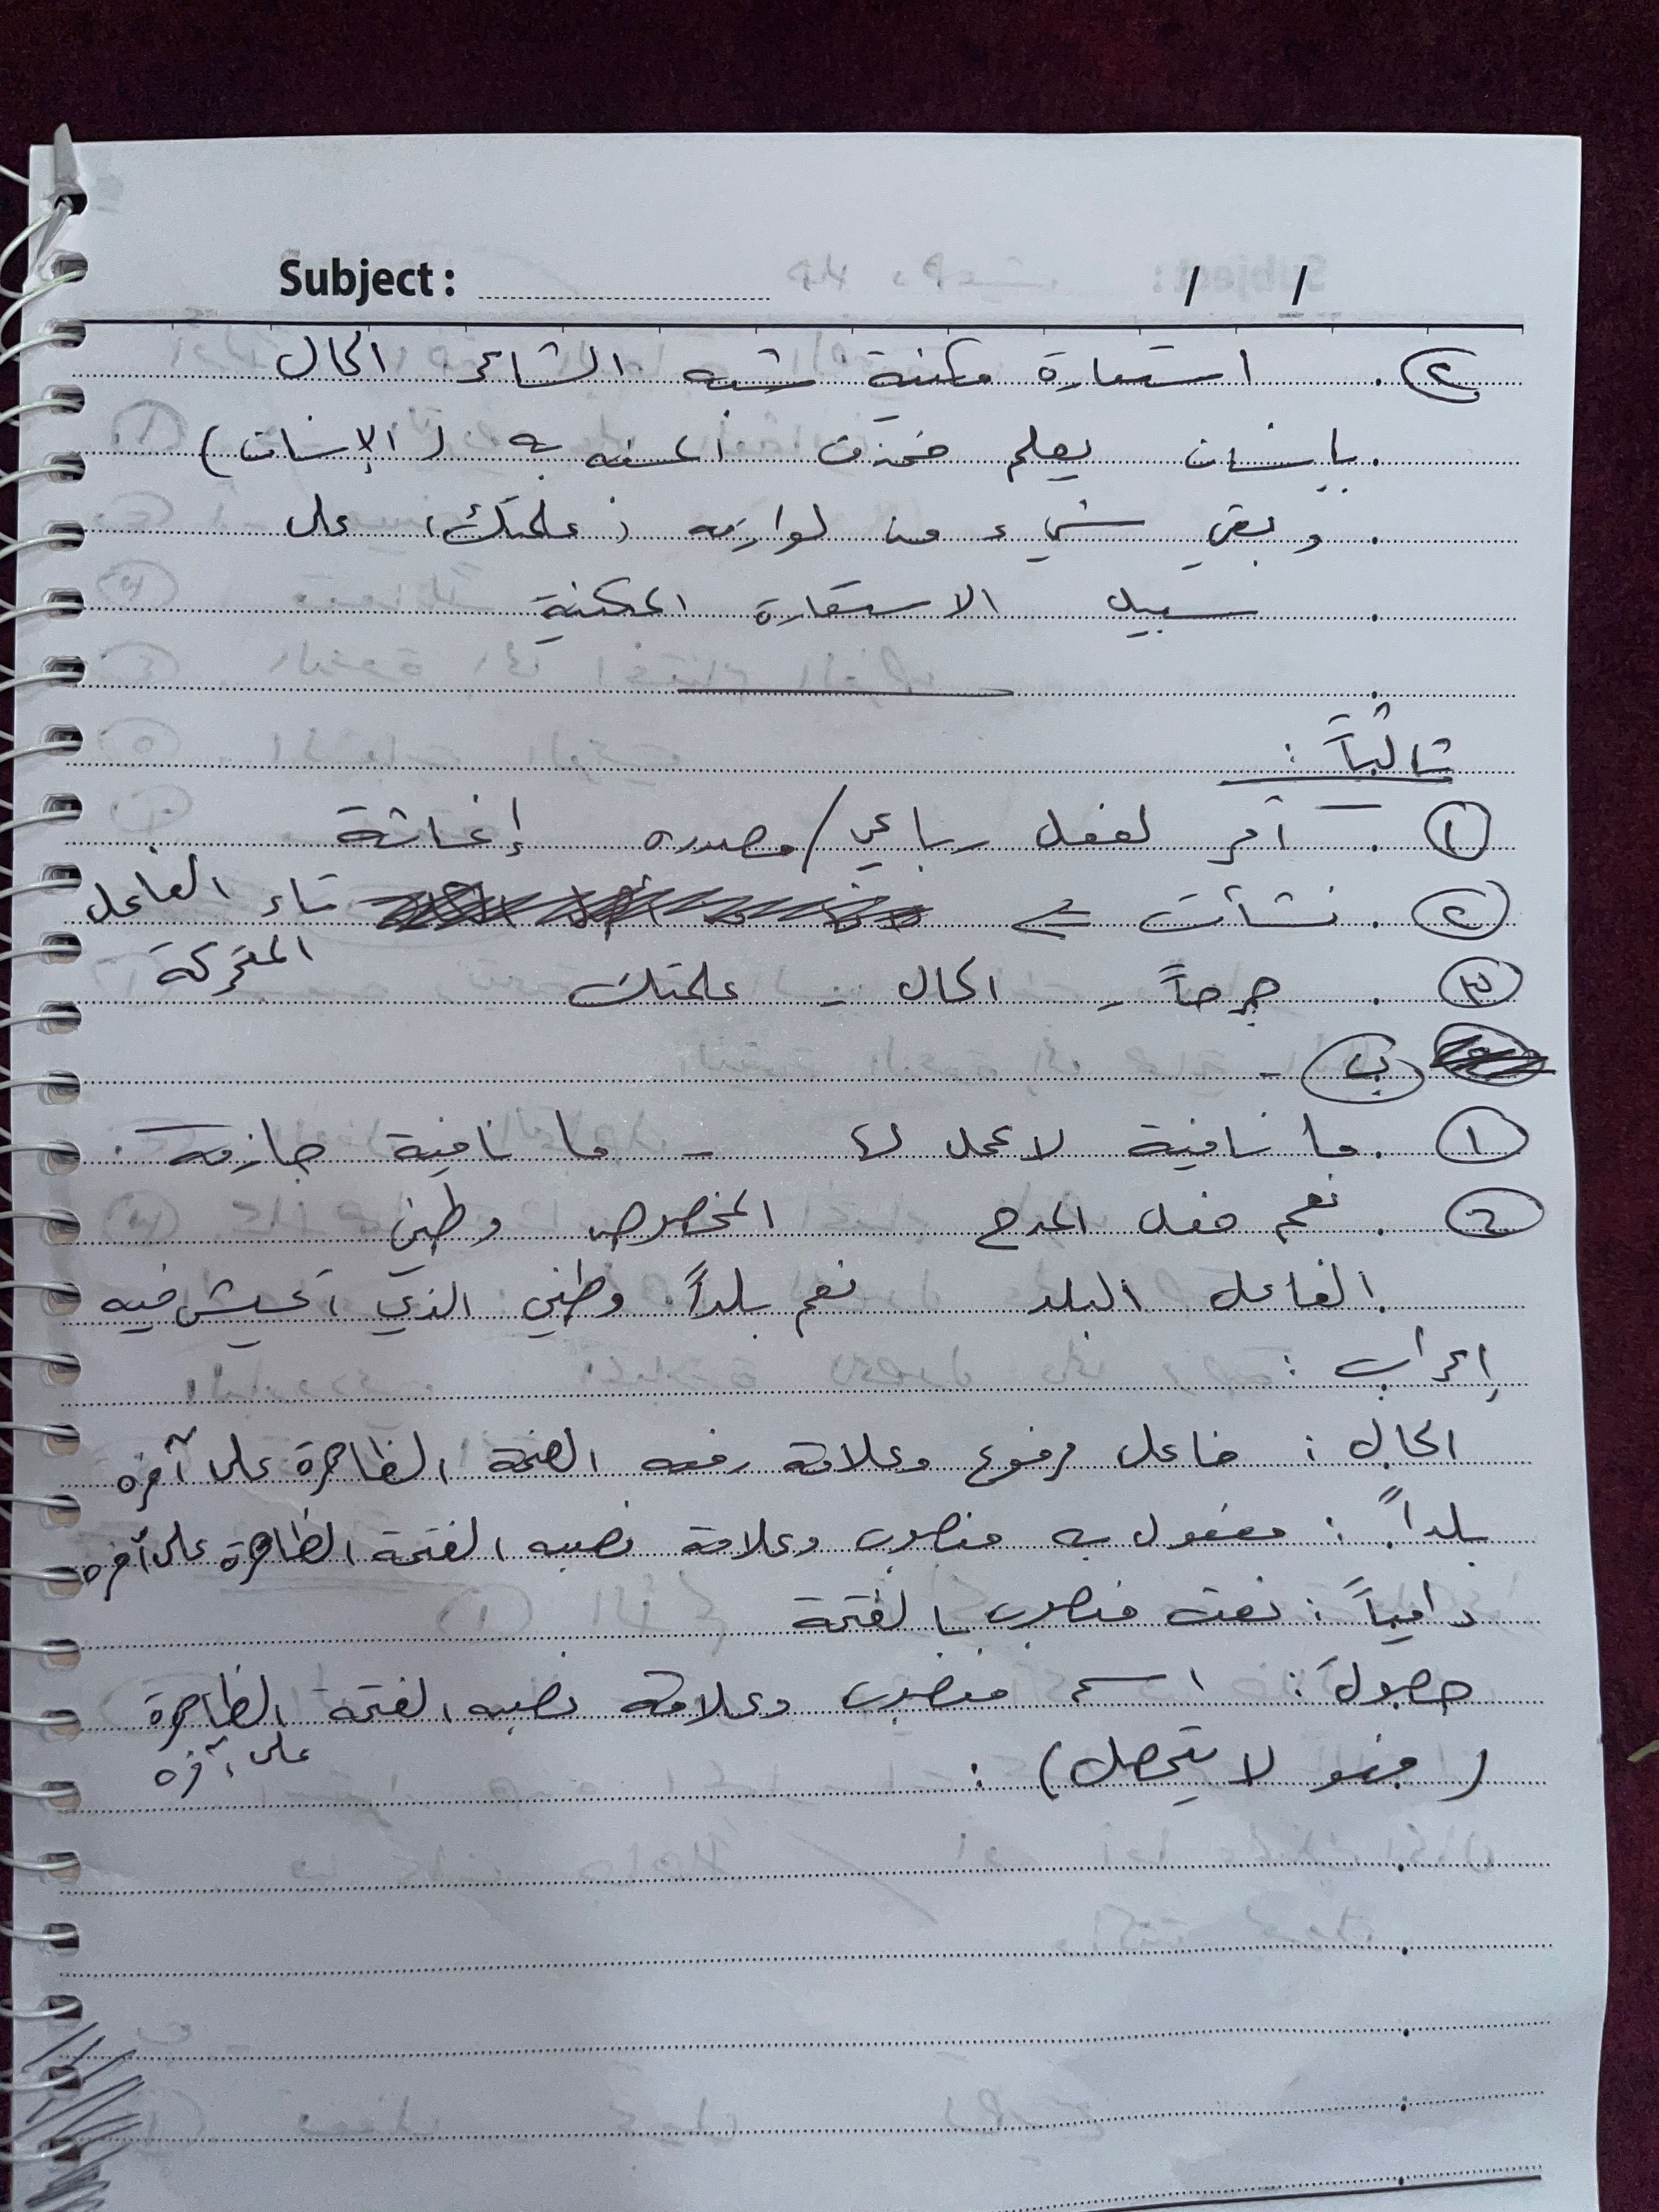 Subject: / /
٢ . استعارة مكنية شبه الشاعر الحال
بإنسان يعلم فحذف المشبه به (الإنسان)
وبقي شيء من لوازمه (علمتك) على
سبيل الاستعارة المكنية
ثالثاً :
١ . أمر لفعل رباعي / مصدره إغاثة
٢ . نشأت <= تاء الفاعل
المتحركة
٣ . جرحاً - الحال - علمتك
ب -
١ . ما نافية لا عمل لها - ما نافية جازمة .
٢ . نعم فعل المدح المخصوص وطني
الفاعل البلد نعم بلداً وطني الذي أعيش فيه
إعراب :
الحال : فاعل مرفوع وعلامة رفعه الضمة الظاهرة على آخره
بلداً : مفعول به منصوب وعلامة نصبه الفتحة الظاهرة على آخره
دامياً : نعت منصوب بالفتحة
حصول : اسم منصوب وعلامة نصبه الفتحة الظاهرة
على آخره
( فهو لا يتحصل ) :